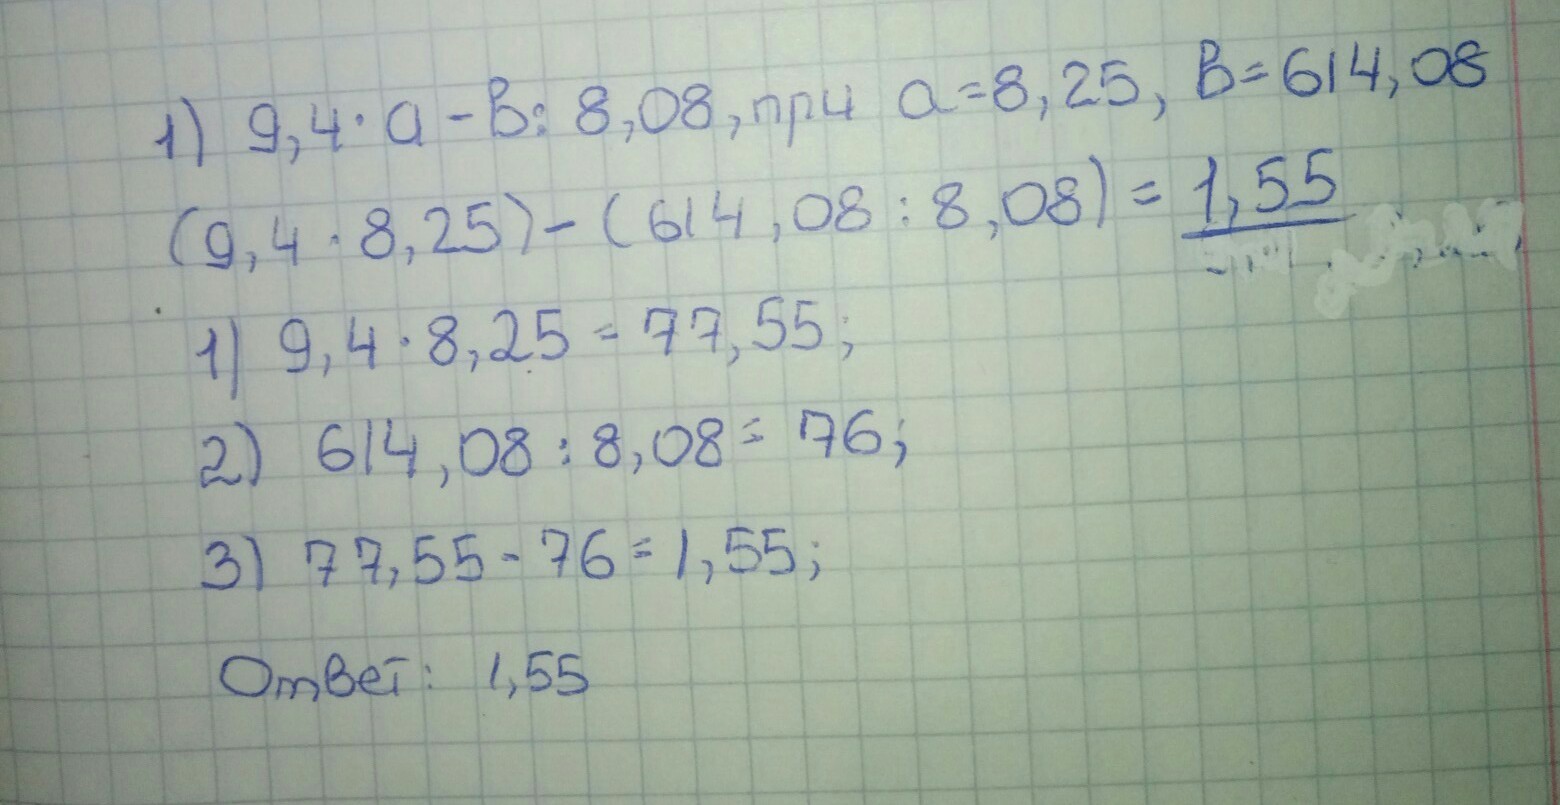 1) 9,4·a-в:8,08, при a=8,25, в=614,08
(9,4·8,25)-(614,08:8,08)=1,55
1) 9,4·8,25=77,55;
2) 614,08:8,08=76;
3) 77,55-76=1,55;
Ответ: 1,55